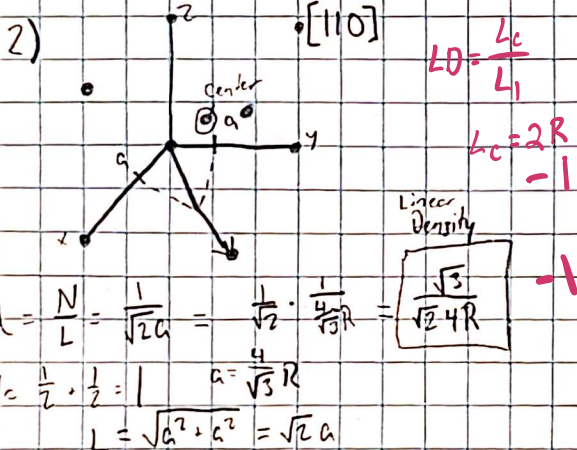 2)
z
[110]
LD = Lc/L1
Center
a
y
Lc = 2R
-1
a
x
Linear
Density
= N/L = 1/√2a = 1/√2 · 1/(4/√3 R) = √3/(√2 4R)
-1
= 1/2 + 1/2 = 1
a = 4/√3 R
L = √(a² + a²) = √2 a